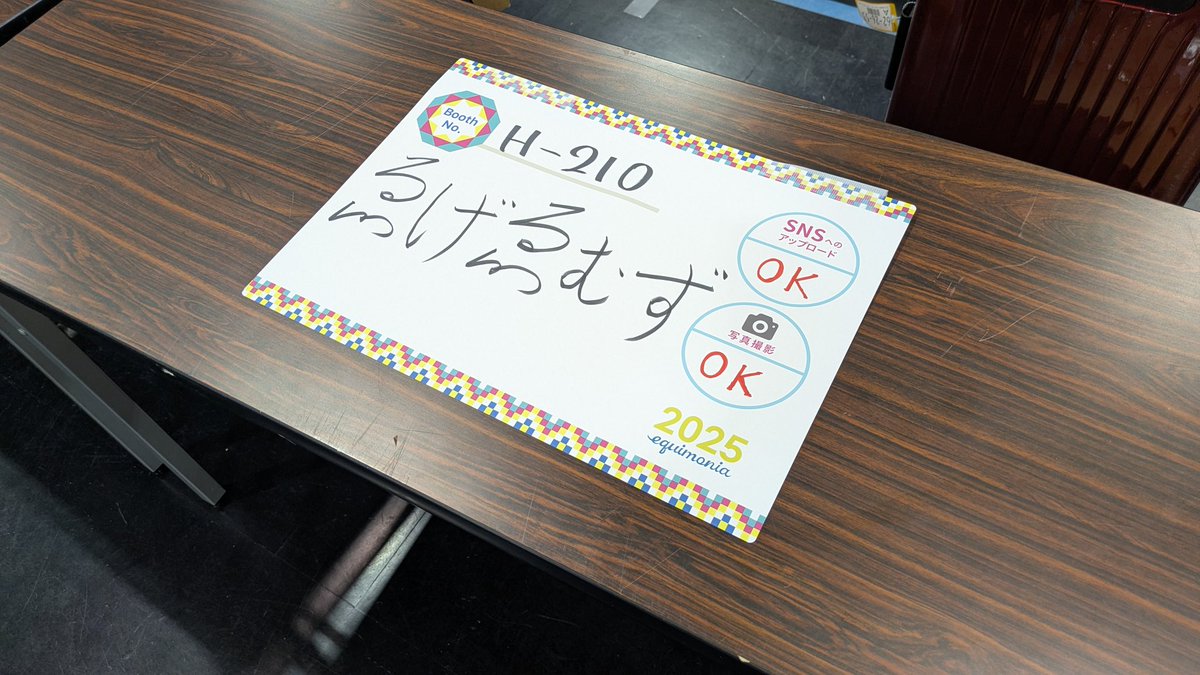 Booth No. H-210
ゑしげゑむず
SNSへの
アップロード
OK
写真撮影
OK
2025
equimonia